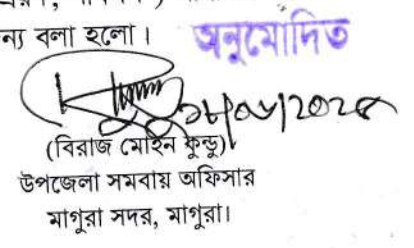 ন্য বলা হলো।
অনুমোদিত
(বিরাজ মোহন কুন্ডু)
উপজেলা সমবায় অফিসার
মাগুরা সদর, মাগুরা।